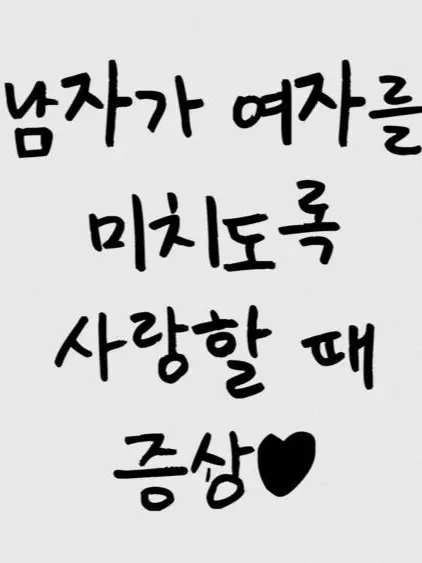 남자가 여자를
미치도록
사랑할 때
증상♥